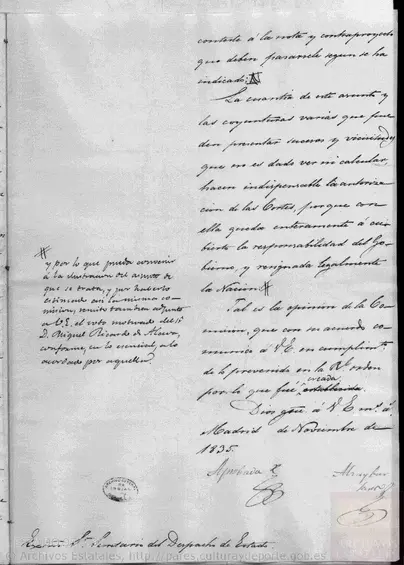 contesta á la nota y contraproyecto
que deben pasarsele segun se ha
indicado.
La cuantia de este asunto y
las coyunturas varias que pue
den presentar sucesos y vicisitudes
que no es dado ver ni calcular,
hacen indispensable la autoriza
cion de las Cortes, porque con
ella queda enteramente á cu
bierto la responsabilidad del Go
bierno, y resignada legalmente
la Nacion #
Tal es la opinion de la Co
mision, que con su acuerdo co
munico á V.E. en cumplimto.
de lo prevenido en la Rl. orden
por la que fué establecida. creada
Dios gue. á V.E. ms. as.
Madrid de Noviembre de
1835.
#
y por lo que pueda convenir
á la ilustracion del asunto de
que se trata, y por haberlo
estimado asi la misma co
mision, remito tambien adjunto
a V.E. el voto motivado del Sr.
D. Miguel Ricardo de Alava,
conforme en lo esencial, a lo
acordado por aquella
Aprobada
Excmo. Sr. Secretario del Despacho de Estado.
© Archivos Estatales, http://pares.culturaydeporte.gob.es